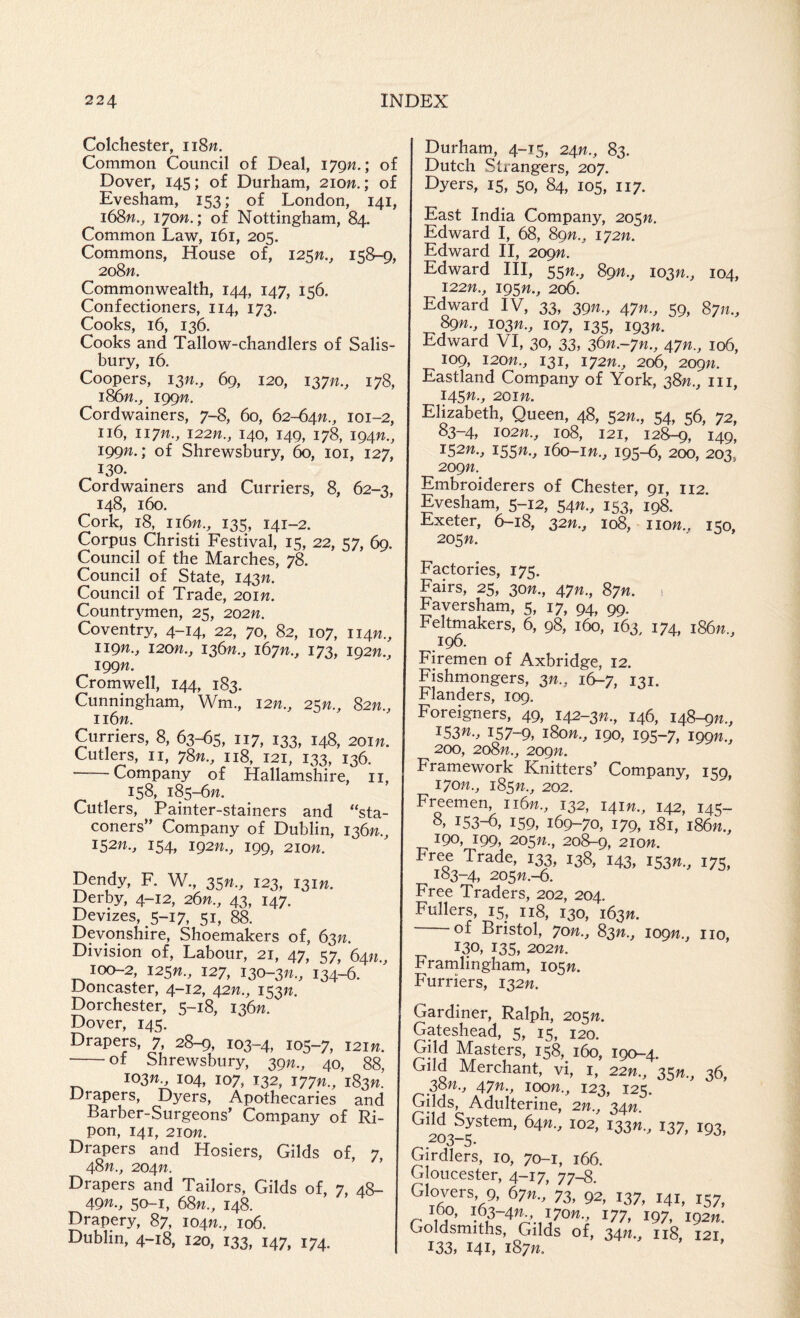 224 INDEX
Colchester, 118n.
Common Council of Deal, 179n.; of
Dover, 145; of Durham, 210n.; of
Evesham, 153; of London, 141,
168n., 170n.; of Nottingham, 84.
Common Law, 161, 205.
Commons, House of, 125n., 158-9,
208n.
Commonwealth, 144, 147, 156.
Confectioners, 114, 173.
Cooks, 16, 136.
Cooks and Tallow-chandlers of Salis-
bury, 16.
Coopers, 13n., 69, 120, 137n., 178,
186n., 199n.
Cordwainers, 7-8, 60, 62-64n., 101-2,
116, 117n., 122n., 140, 149, 178, 194n.,
199n.; of Shrewsbury, 60, 101, 127,
130.
Cordwainers and Curriers, 8, 62-3,
148, 160.
Cork, 18, 116n., 135, 141-2.
Corpus Christi Festival, 15, 22, 57, 69.
Council of the Marches, 78.
Council of State, 143n.
Council of Trade, 201n.
Countrymen, 25, 202n.
Coventry, 4-14, 22, 70, 82, 107, 114n.,
119n., 120n., 136n., 167n., 173, 192n.,
199n.
Cromwell, 144, 183.
Cunningham, Wm., 12n., 25n., 82n.,
116n.
Curriers, 8, 63-65, 117, 133, 148, 201n.
Cutlers, 11, 78n., 118, 121, 133, 136.
—— Company of Hallamshire, 11,
158, 185-6n.
Cutlers, Painter-stainers and "sta-
coners" Company of Dublin, 136n.,
152n., 154, 192n., 199, 210n.
Dendy, F. W., 35n., 123, 131n.
Derby, 4-12, 26n., 43, 147.
Devizes, 5-17, 51, 88.
Devonshire, Shoemakers of, 63n.
Division of, Labour, 21, 47, 57, 64n.,
100-2, 125n., 127, 130-3n., 134-6.
Doncaster, 4-12, 42n., 153n.
Dorchester, 5-18, 136n.
Dover, 145.
Drapers, 7, 28-9, 103-4, 105-7, 121n.
—— of Shrewsbury, 39n., 40, 88,
103n., 104, 107, 132, 177n., 183n.
Drapers, Dyers, Apothecaries and
Barber-Surgeons' Company of Ri-
pon, 141, 210n.
Drapers and Hosiers, Gilds of, 7,
48n., 204n.
Drapers and Tailors, Gilds of, 7, 48-
49n., 50-1, 68n., 148.
Drapery, 87, 104n., 106.
Dublin, 4-18, 120, 133, 147, 174.
Durham, 4-15, 24n., 83.
Dutch Strangers, 207.
Dyers, 15, 50, 84, 105, 117.
East India Company, 205n.
Edward I, 68, 89n., 172n.
Edward II, 209n.
Edward III, 55n., 89n., 103n., 104,
122n., 195n., 206.
Edward IV, 33, 39n., 47n., 59, 87n.,
89n., 103n., 107, 135, 193n.
Edward VI, 30, 33, 36n.-7n., 47n., 106,
109, 120n., 131, 172n., 206, 209n.
Eastland Company of York, 38n., 111,
145n., 201n.
Elizabeth, Queen, 48, 52n., 54, 56, 72,
83-4, 102n., 108, 121, 128-9, 149,
152n., 155n., 160-1n., 195-6, 200, 203,
209n.
Embroiderers of Chester, 91, 112.
Evesham, 5-12, 54n., 153, 198.
Exeter, 6-18, 32n., 108, 110n., 150,
205n.
Factories, 175.
Fairs, 25, 30n., 47n., 87n.
Faversham, 5, 17, 94, 99.
Feltmakers, 6, 98, 160, 163, 174, 186n.,
196.
Firemen of Axbridge, 12.
Fishmongers, 3n., 16-7, 131.
Flanders, 109.
Foreigners, 49, 142-3n., 146, 148-9n.,
153n., 157-9, 180n., 190, 195-7, 199n.,
200, 208n., 209n.
Framework Knitters' Company, 159,
170n., 185n., 202.
Freemen, 116n., 132, 141n., 142, 145-
8, 153-6, 159, 169-70, 179, 181, 186n.,
190, 199, 205n., 208-9, 210n.
Free Trade, 133, 138, 143, 153n., 175,
183-4, 205n.-6.
Free Traders, 202, 204.
Fullers, 15, 118, 130, 163n.
—— of Bristol, 70n., 83n., 109n., 110,
130, 135, 202n.
Framlingham, 105n.
Furriers, 132n.
Gardiner, Ralph, 205n.
Gateshead, 5, 15, 120.
Gild Masters, 158, 160, 190-4.
Gild Merchant, vi, 1, 22n., 35n., 36,
38n., 47n., 100n., 123, 125.
Gilds, Adulterine, 2n., 34n.
Gild System, 64n., 102, 133n., 137, 193,
203-5.
Girdlers, 10, 70-1, 166.
Gloucester, 4-17, 77-8.
Glovers, 9, 67n., 73, 92, 137, 141, 157,
160, 163-4n., 170n., 177, 197, 192n.
Goldsmiths, Gilds of, 34n., 118, 121,
133, 141, 187n.